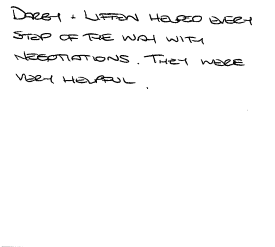 DARBY + LIFFEN HELPED EVERY
STEP OF THE WAY WITH
NEGOTIATIONS. THEY WERE
VERY HELPFUL.